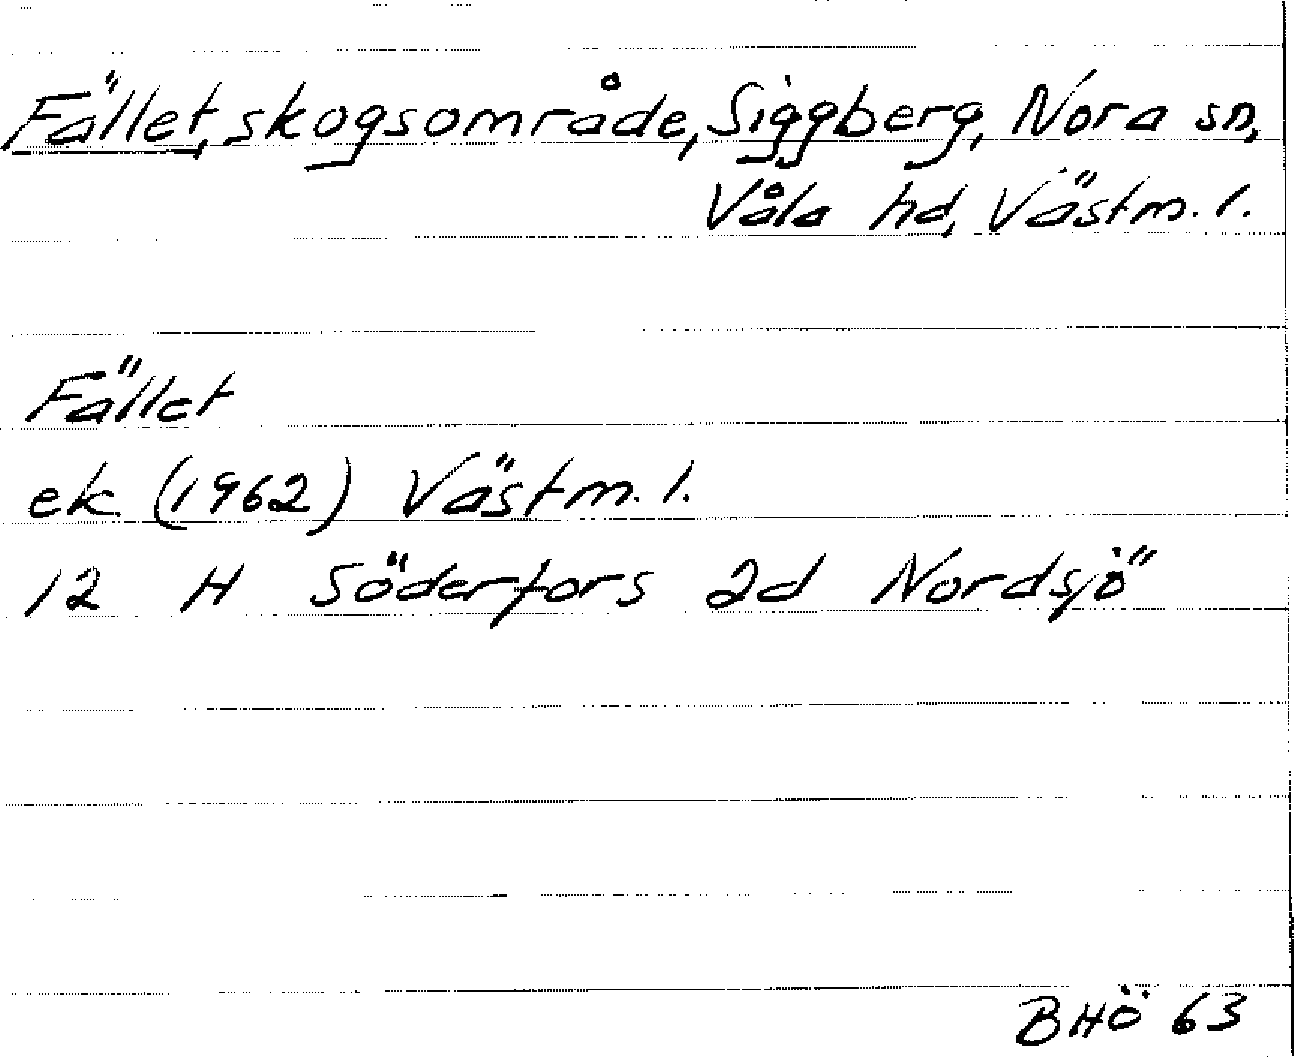 Fället, skogsområde, Siggberg, Nora sn,
Våla hd, Västm. l.
Fället
ek. (1962) Västm. l.
12 H Söderfors 2d Nordsjö
BHÖ 63